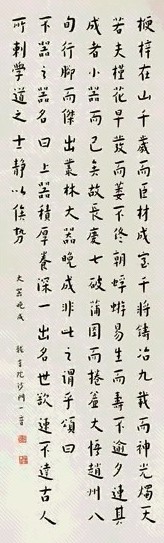 梗梓在山千歲而巨材成宝干將鑄冶九載而神光燭天
若夫槿花早發而萎不終朝蜉蝣易生而壽不逾夕速其
成者小器而已矣故長慶七破蒲團而捲簾大悟趙州八
旬行腳而傑出叢林大器晚成非此之謂乎頌曰
不器之器名曰上器積厚養深一出名世欲速不達古人
所刺學道之士靜以俟勢
大器晚成 沙門一音